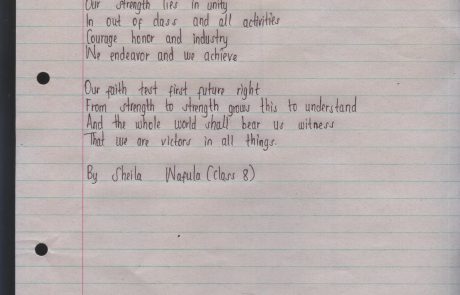 Our strength lies in unity
In out of class and all activities
Courage honor and industry
We endeavor and we achieve
Our faith test first future right
From strength to strength grows this to understand
And the whole world shall bear us witness
That we are victors in all things.
By Sheila Wafula (Class 8)